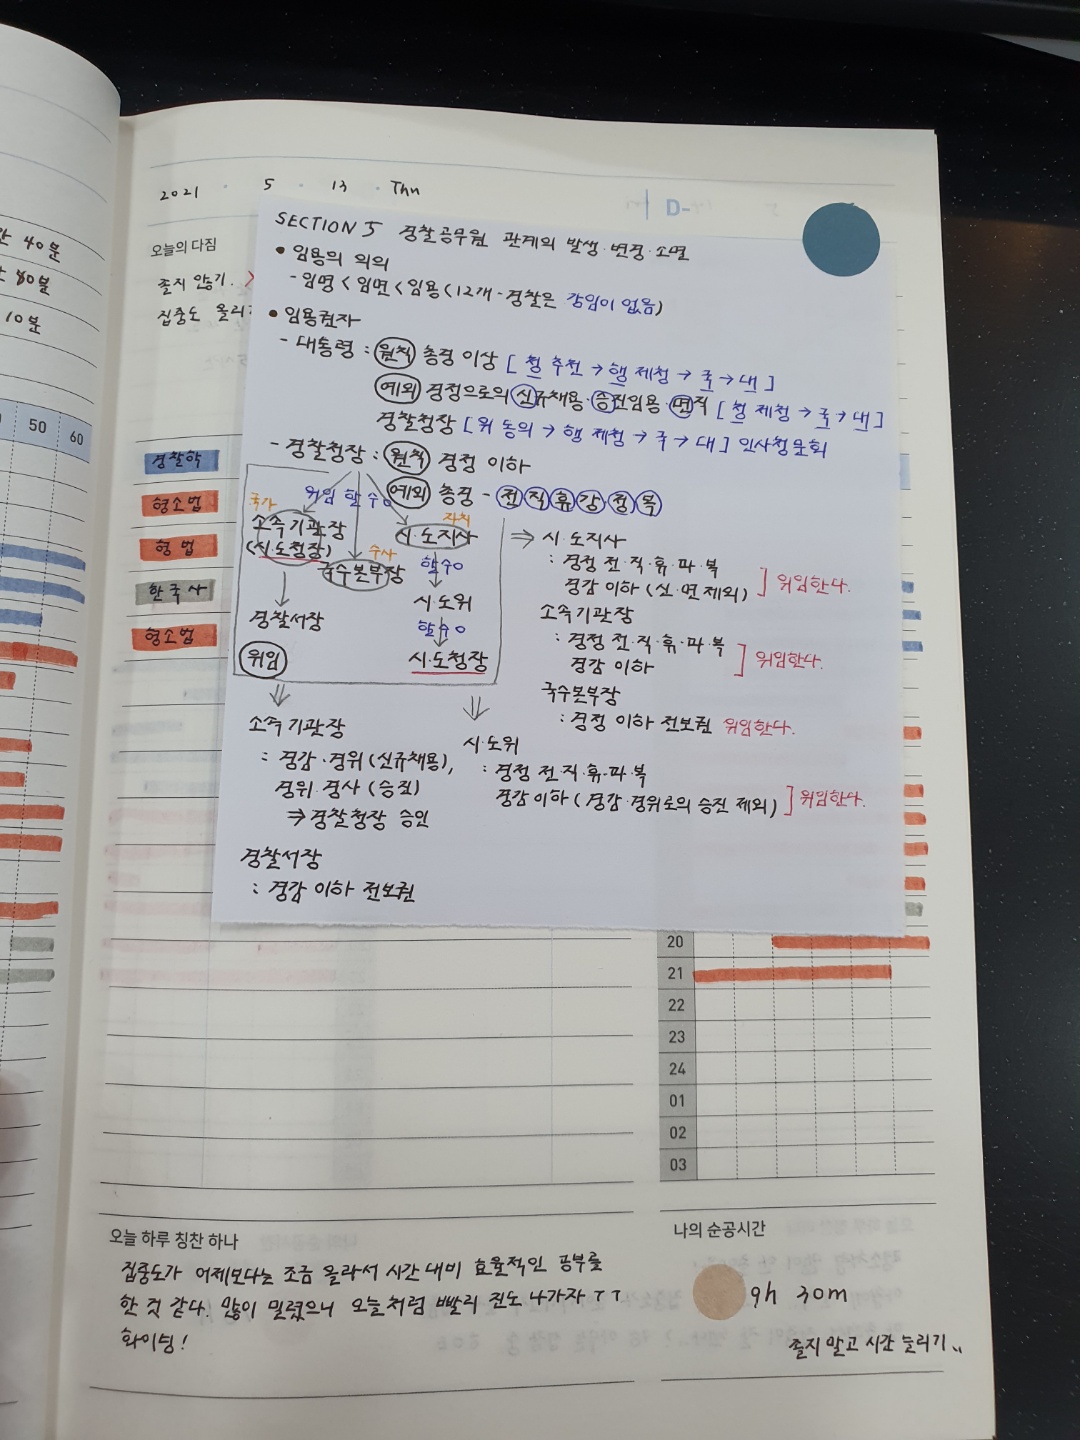 2021 · 5 · 13 · Thu
D-
오늘의 다짐
졸지 않기.
집중도 올리
SECTION 5 경찰공무원 관계의 발생·변경·소멸
• 임용의 의의
- 임명 < 임면 < 임용 (12개 - 경찰은 강임이 없음)
• 임용권자
- 대통령 : 원칙 총경 이상 [ 청 추천 → 행 제청 → 국 → 대 ]
예외 경정으로의 신규채용·승진임용·면직 [ 청 제청 → 국 → 대 ]
경찰청장 [ 위 동의 → 행 제청 → 국 → 대 ] 인사청문회
- 경찰청장 : 원칙 경정 이하
예외 총경 - 전 직 휴 강 정 복
위임 할 수 ○
국가
소속기관장
(시·도청장)
경찰서장
수사
국수본부장
자치
시·도지사
할 수 ○
시·도위
할 수 ○
시·도청장
위임
⇒ 시·도지사
: 경정 전·직·휴·파·복
경감 이하 (신·면 제외) ] 위임한다.
소속기관장
: 경정 전·직·휴·파·복
경감 이하 ] 위임한다.
국수본부장
: 경정 이하 전보권 위임한다.
소속기관장
: 경감·경위 (신규채용),
경위·경사 (승진)
⇒ 경찰청장 승인
시·도위
: 경정 전·직·휴·파·복
경감 이하 (경감·경위로의 승진 제외) ] 위임한다.
경찰서장
: 경감 이하 전보권
40분
10분
50 60
경찰학
형소법
형법
한국사
형소법
20
21
22
23
24
01
02
03
오늘 하루 칭찬 하나
집중도가 어제보다는 조금 올라서 시간 대비 효율적인 공부를
한 것 같다. 많이 밀렸으니 오늘처럼 빨리 진도 나가자 ㅜㅜ
화이팅!
나의 순공시간
9h 30m
졸지 말고 시간 늘리기